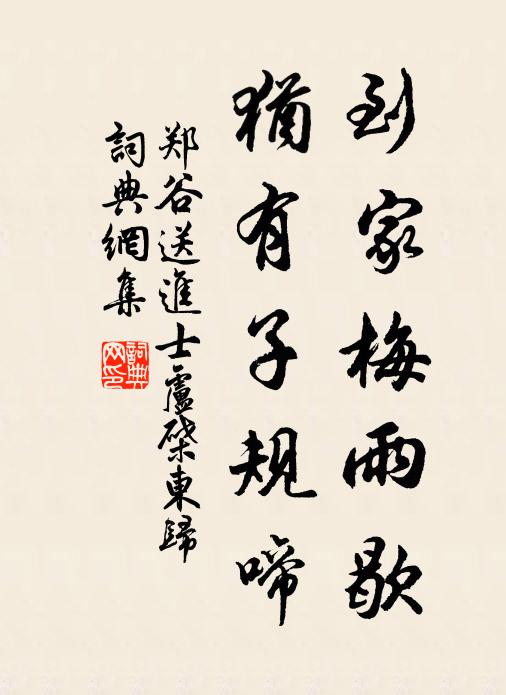 到家梅雨歇
猶有子規啼
郑谷送進士盧棨東歸
詞典網集
詞典网印